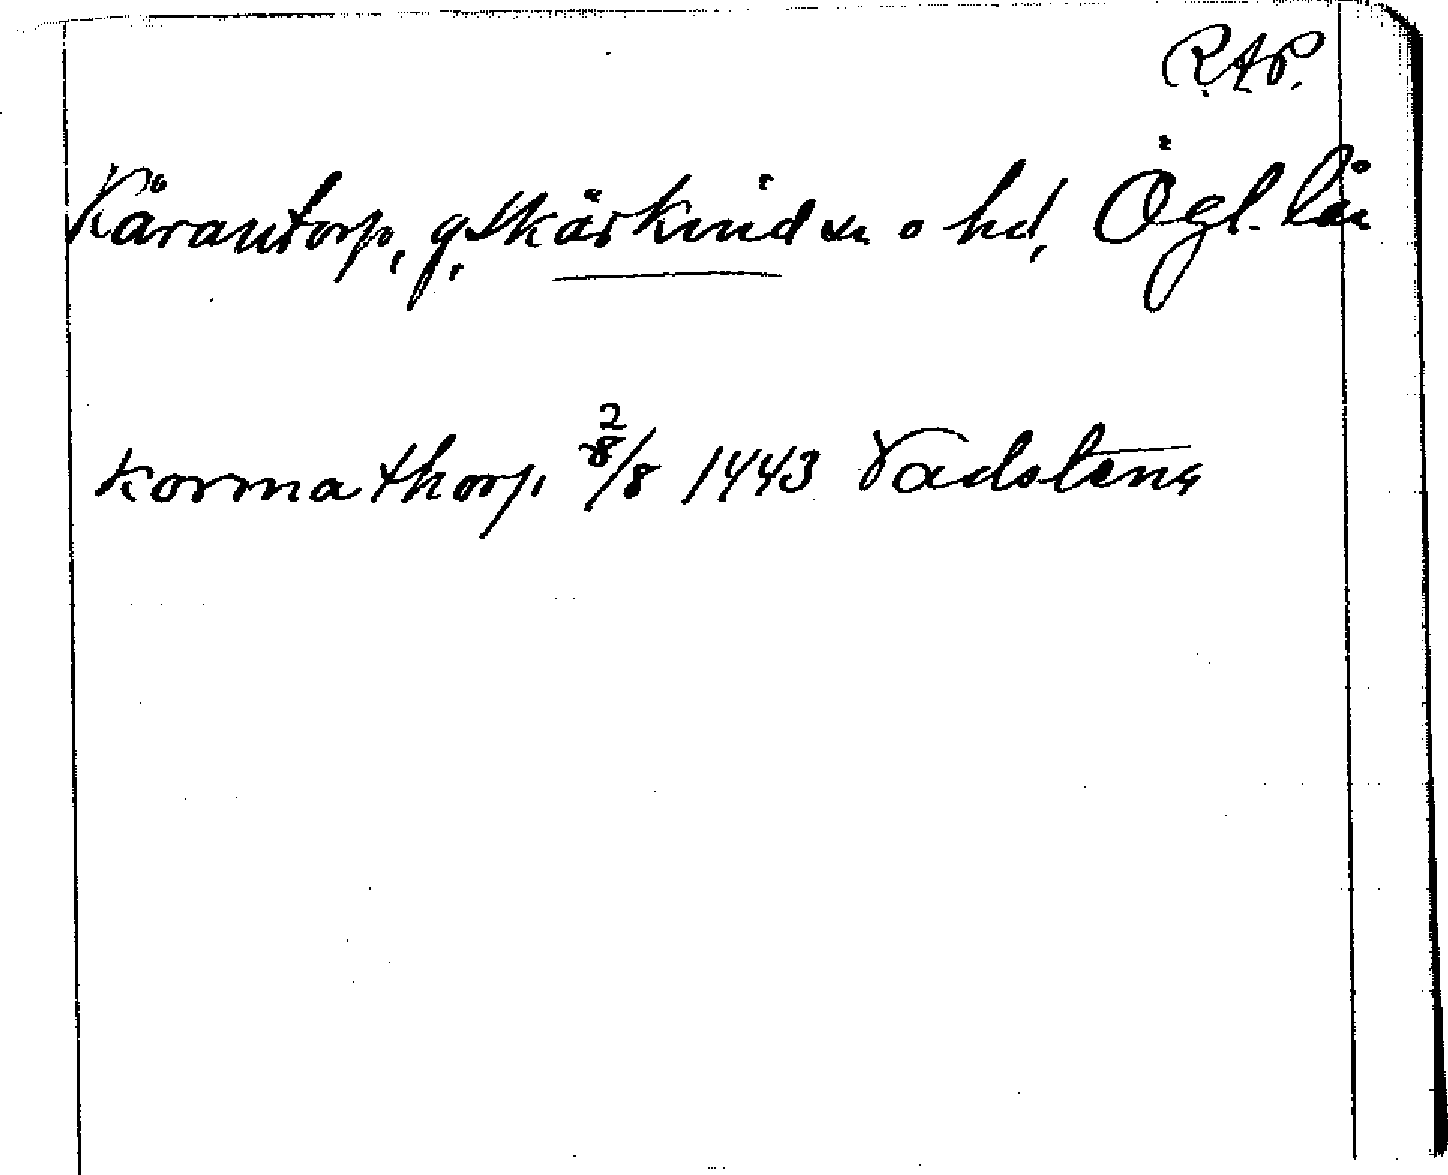 RAP.
Kärantorp, g. Skärkind sn o hd, Ögl. län
kormathorp. 2/8 1443 Vadstena